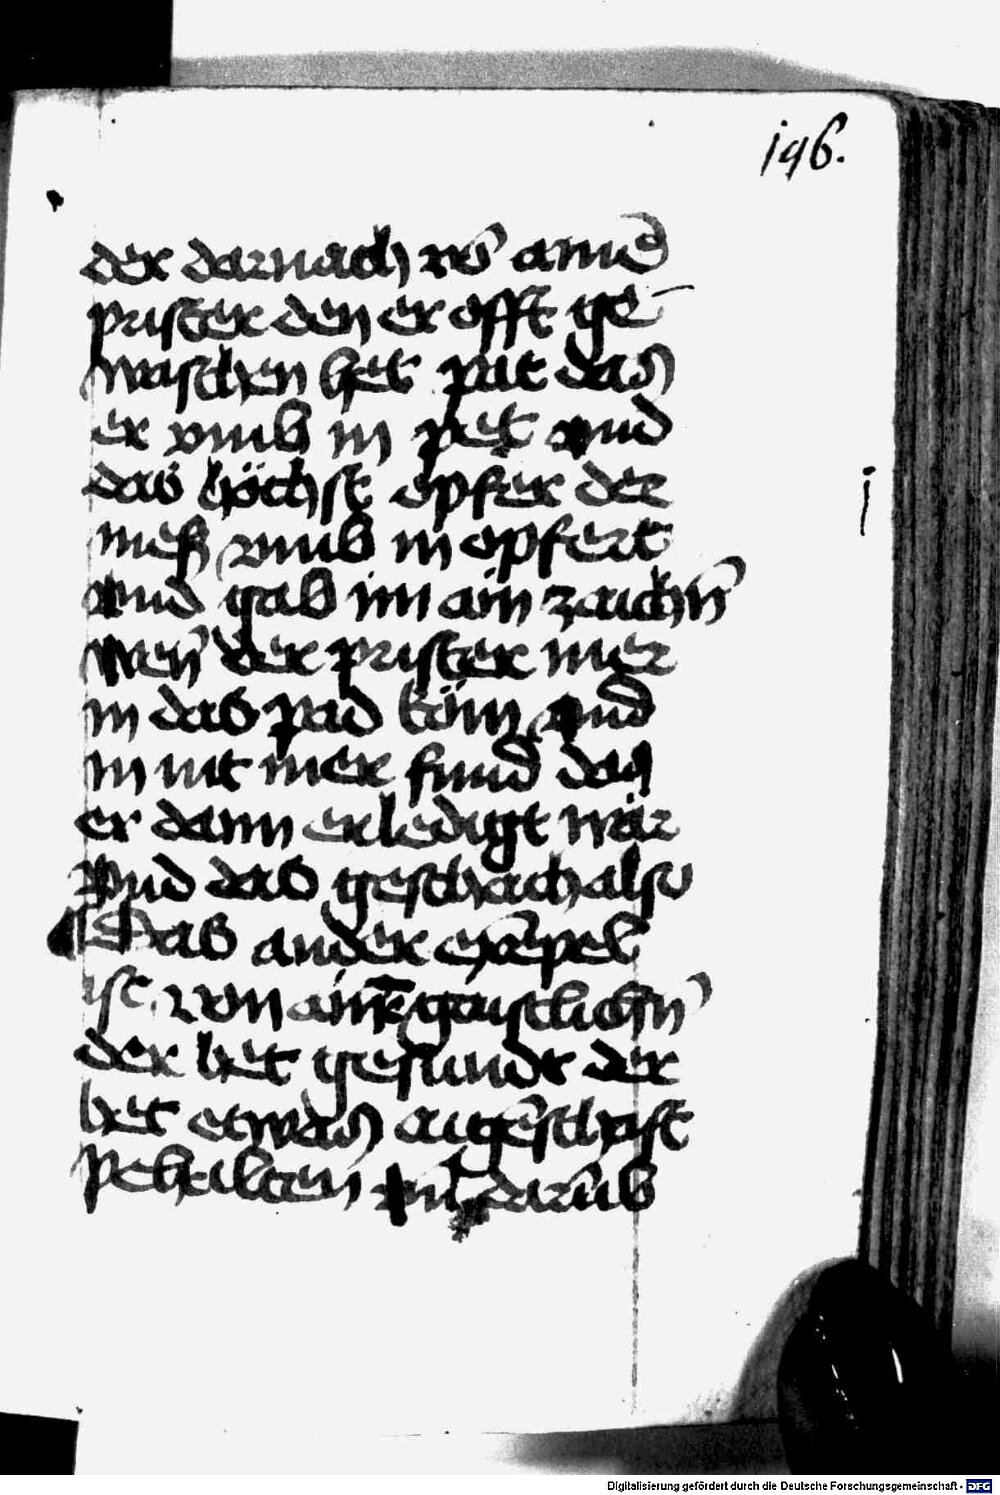 196.
der darnach vō ainē
prister den er offt ge-
waschen het pat das
er vmb in pet vnd
das höchst opfer der
meß vmb in opfert
vnd gab im ain zaichn̄
wen̄ der prister mer
in das pad köm vnd
in nit mer fund das
er dann erledigt wär
Vnd das geschach also
Das ander exēpel
ist von geistlichn̄
der het gesundt der
het etwas
Pehalten vnd darūb
Digitalisierung gefördert durch die Deutsche Forschungsgemeinschaft - DFG